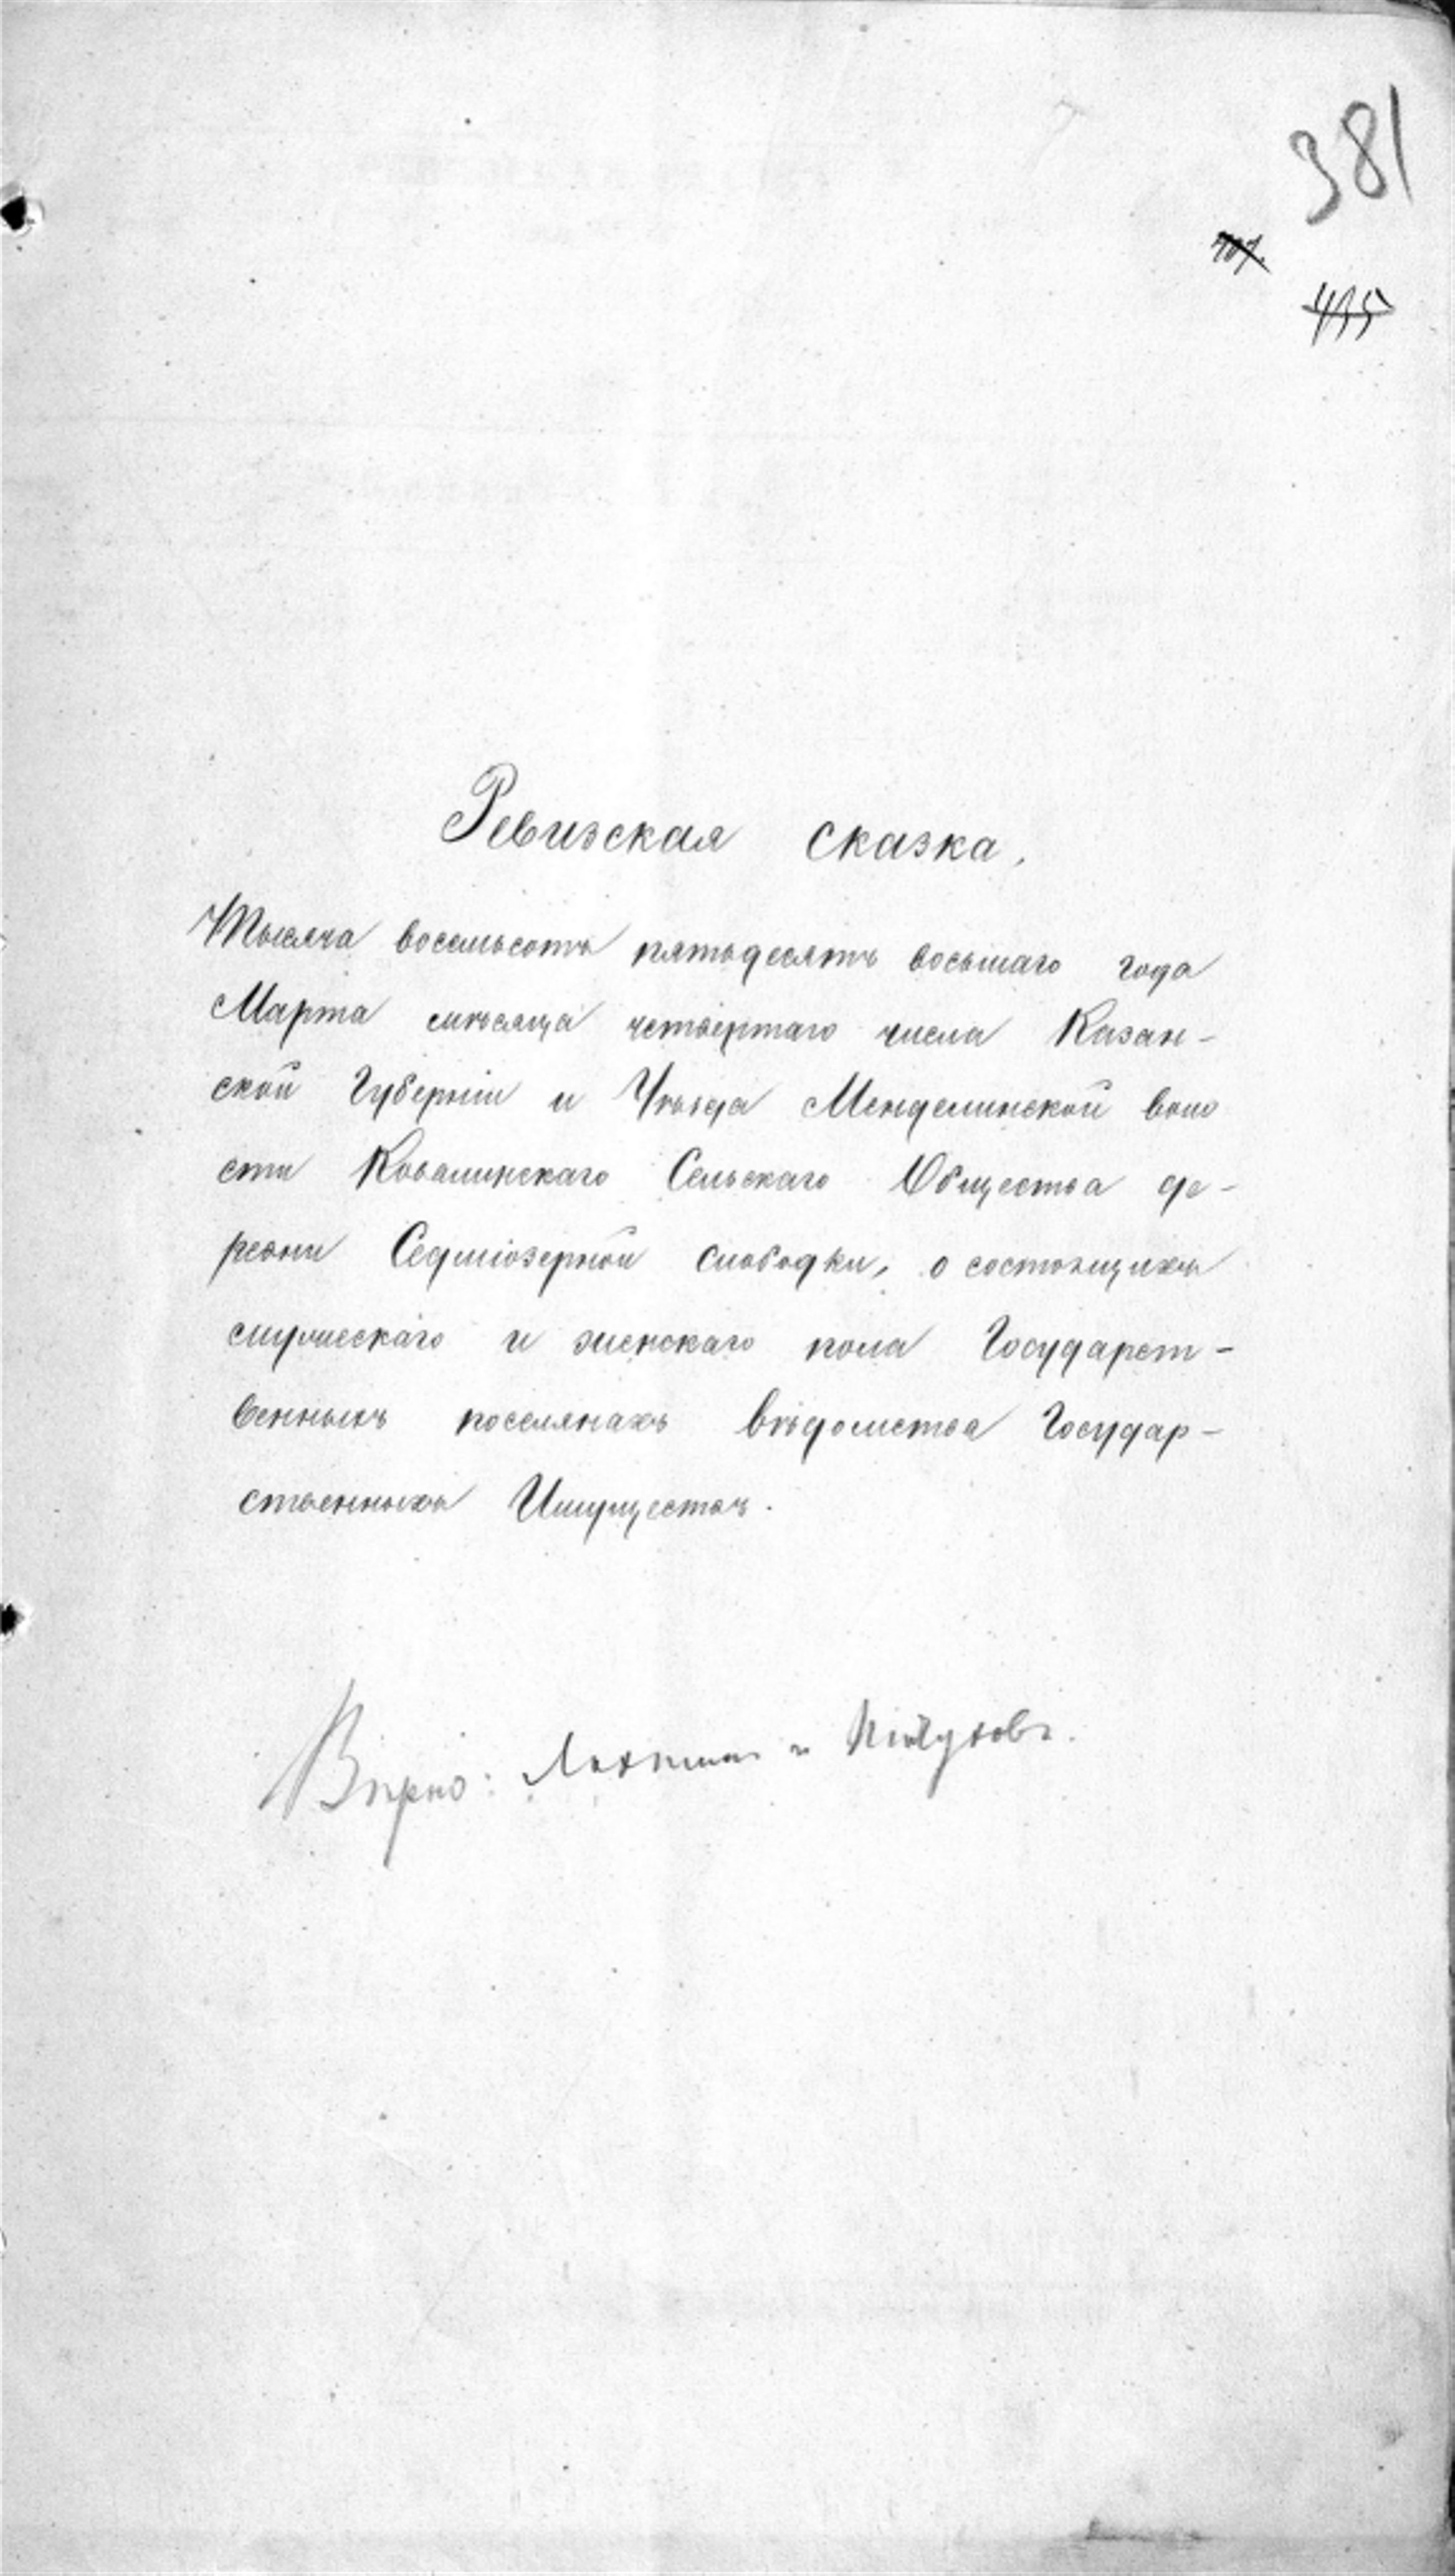 381
455
Ревизская сказка.
Тысяча восемьсотъ пятьдесятъ восьмаго года
Марта мѣсяца четвертаго числа Казан-
ской Губерніи и Уѣзда Менделинской воло
сти Ковалинскаго Сельскаго Общества де-
ревни Седміозерной слободки, о состоящихъ
мужескаго и женскаго пола Государст-
венныхъ поселянахъ вѣдомства Государ-
ственныхъ Имуществъ.
Вѣрно: